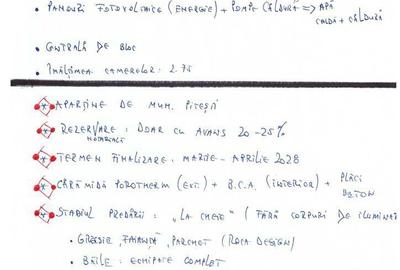 • PANOURI FOTOVOLTAICE (ENERGIE) + POMPE CĂLDURĂ => APĂ
CALDĂ + CĂLDURĂ
• CENTRALĂ DE BLOC
• ÎNĂLȚIMEA CAMERELOR: 2.75
* APARȚINE DE MUN. PITEȘTI
* REZERVARE: DOAR CU AVANS 20-25%
NOTARIALĂ
* TERMEN FINALIZARE: MARTIE - APRILIE 2028
* CĂRĂMIDĂ POROTHERM (EXT.) + B.C.A. (INTERIOR) + PLĂCI
BETON
* STADIUL PREDĂRII: "LA CHEIE" (FĂRĂ CORPURI DE ILUMINAT
• GRESIE, FAIANȚĂ, PARCHET (ROCA DESIGN)
• BĂILE: ECHIPATE COMPLET